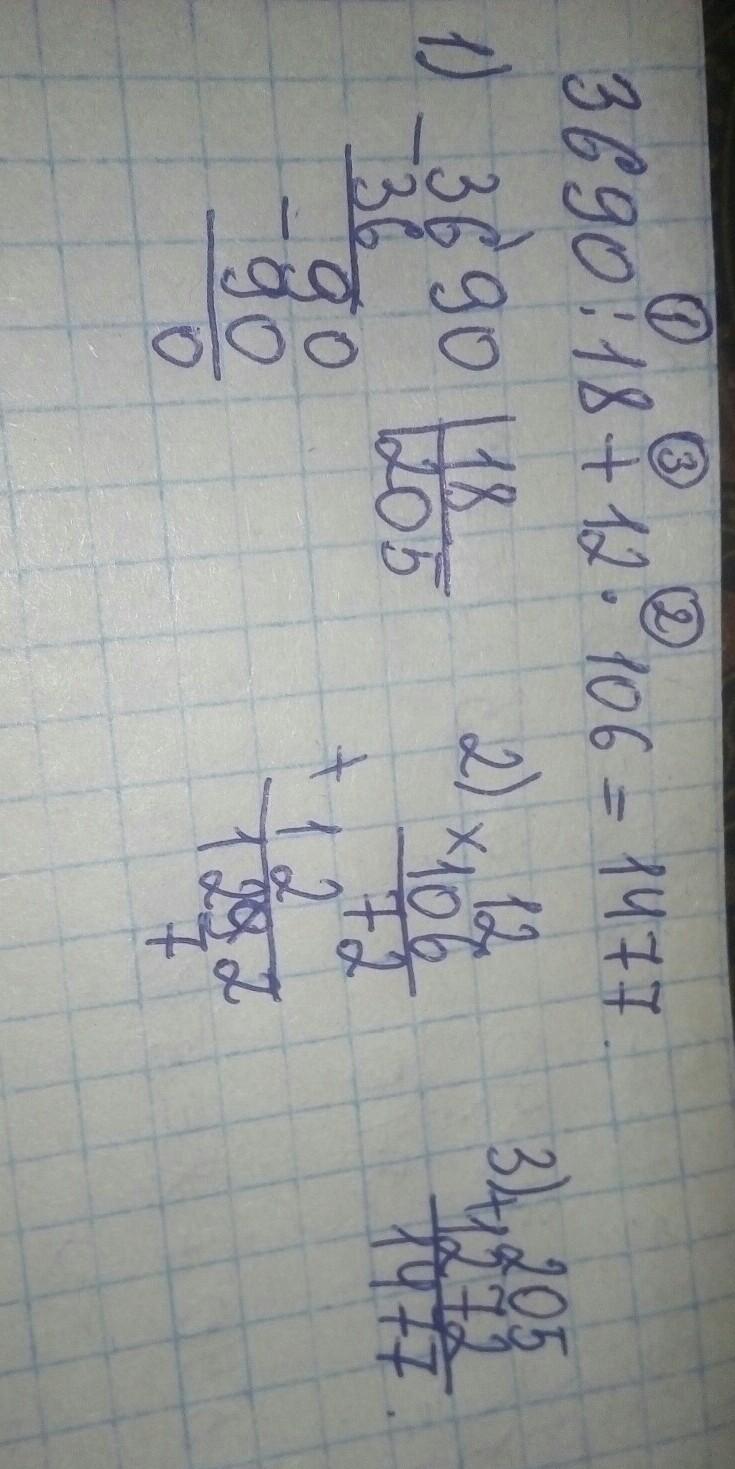 ① ③ ②
3690:18+12·106=1477
1) -3690 |18
36 205
-90
90
0
2) ×12
106
72
+12
12 2
7
3) +205
1272
1477